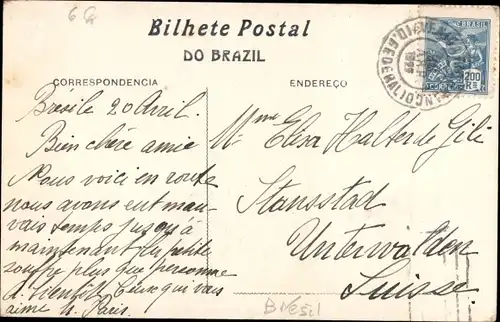 6
Bilhete Postal
DO BRAZIL
CORRESPONDENCIA
ENDEREÇO
BRASIL
200
Rs
Brésil 20 Avril.
Bien chère amie
Nous voici en route
nous avons eut mau-
vais temps jusqu'à
maintenant la petite
souffre plus que personne
A bientôt
aime
Mme Elisa Halter de Gili
Stansstad
Unterwalden
Suisse
Bresil